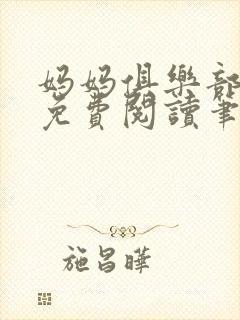 妈妈俱樂部
免費閱讀筆
施昌曄